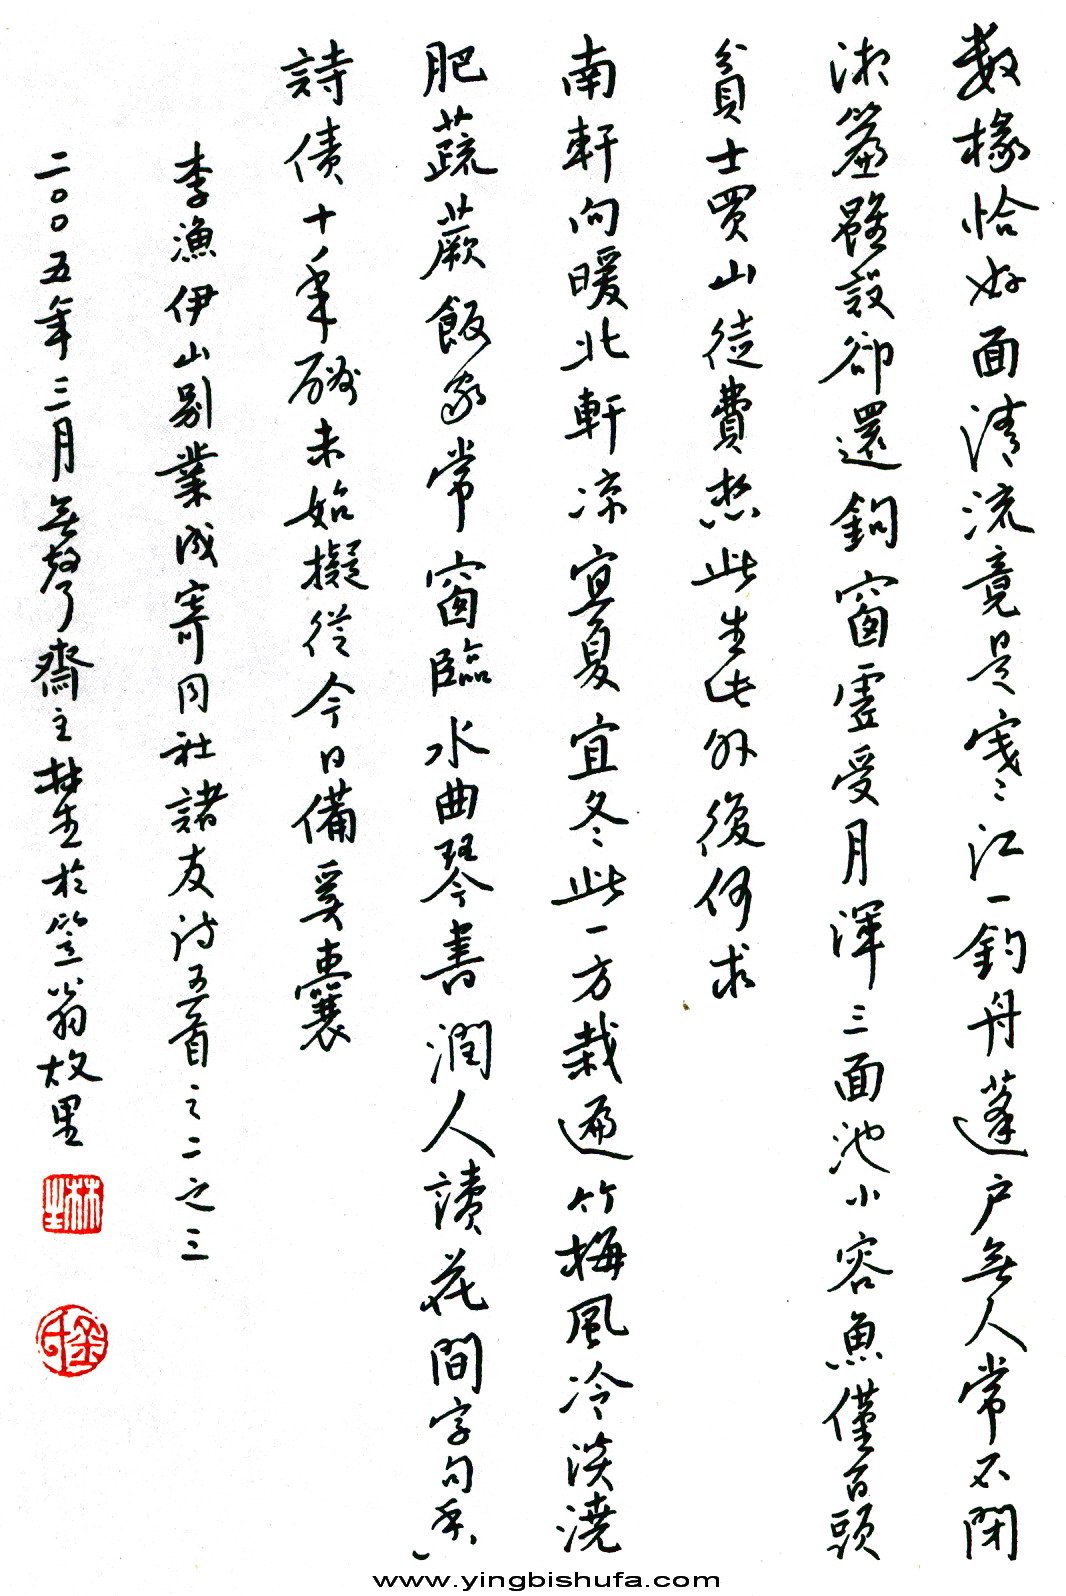 數椽恰好面清流竟是寒江一釣舟蓬戶無人常不閉
湘簾雖設卻還鉤窗虛受月渾三面池小容魚僅百頭
貧士買山徒費想此生此外復何求
南軒向暖北軒涼宜夏宜冬此一方栽遍竹梅風冷淡澆
肥蔬蕨飯家常窗臨水曲琴書潤人讀花間字句香
詩債十年酬未始擬從今日備奚囊
李漁伊山別業成寄同社諸友詩五首之二之三
二〇〇五年三月無聲齋主林生於笠翁故里
林生
www.yingbishufa.com